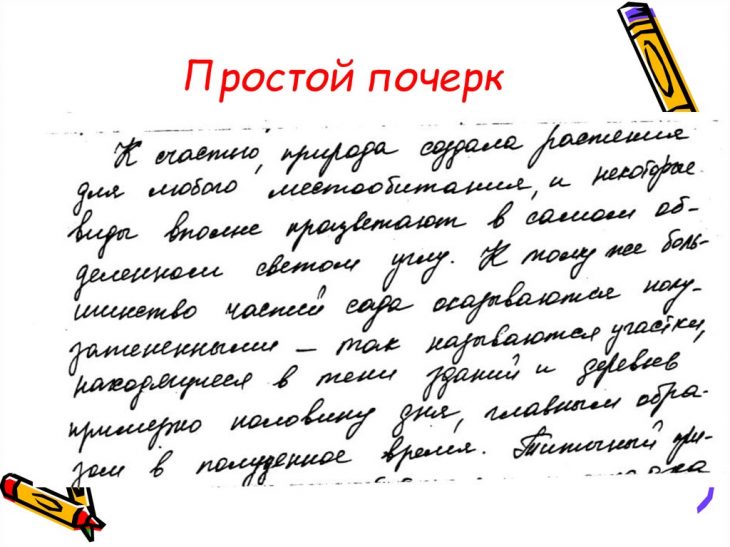 Простой почерк
К счастью, природа создала растения
для любого местообитания, и некоторые
виды вполне процветают в самом об-
деленном светом углу. К тому же боль-
шинство частей сада оказываются полу-
затененными – так называются участки,
находящиеся в тени зданий и деревьев
примерно половину дня, главным обра-
зом в полуденное время. Типичный при-